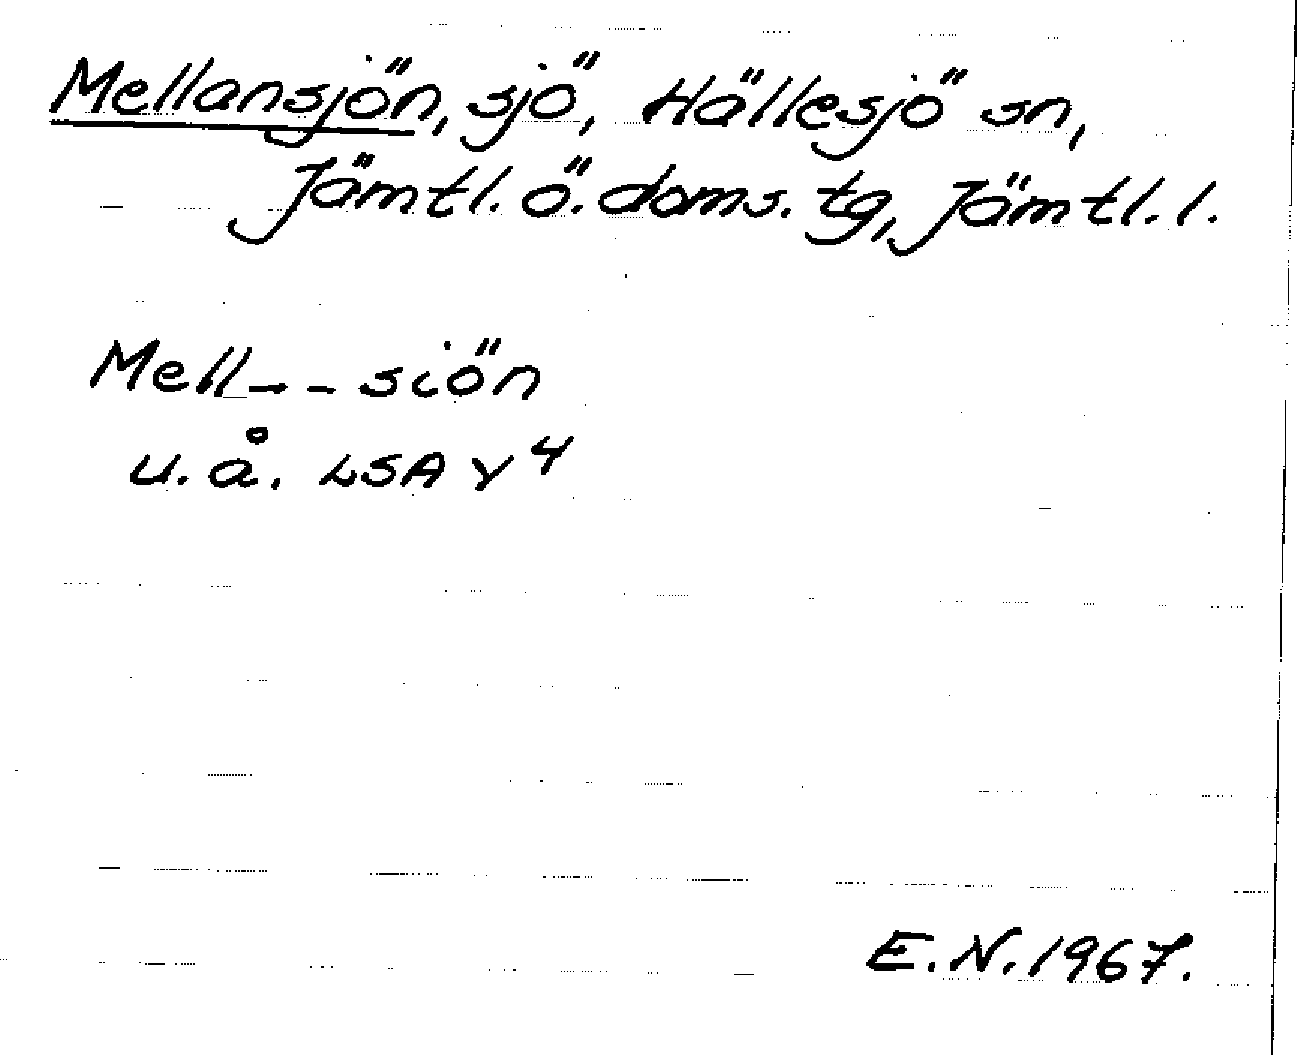 Mellansjön, sjö, Hällesjö sn,
Jämtl. ö. doms. tg, Jämtl. l.
Mell-- siön
u. å. LSA Y 4
E. N. 1967.